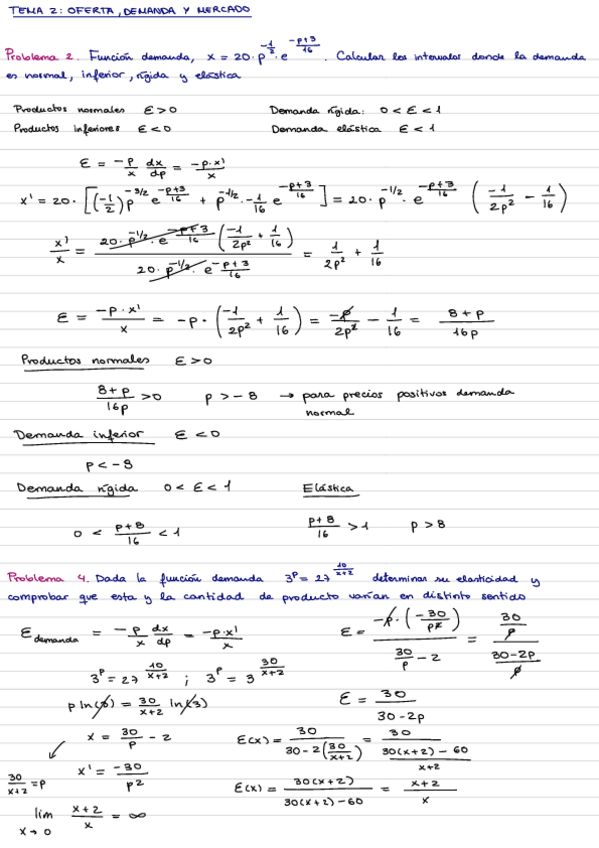 TEMA 2: OFERTA, DEMANDA Y MERCADO
Problema 2. Función demanda, x = 20 · p^(-1/2) · e^((-p+3)/16). Calcular los intervalos donde la demanda
es normal, inferior, rígida y elástica
Productos normales ε > 0 Demanda rígida: 0 < ε < 1
Productos inferiores ε < 0 Demanda elástica ε < 1
ε = -p/x dx/dp = -p·x'/x
x' = 20 · [(-1/2) p^(-3/2) e^((-p+3)/16) + p^(-1/2) · -1/16 e^((-p+3)/16)] = 20 · p^(-1/2) · e^((-p+3)/16) (-1/2p² - 1/16)
x'/x = 20 · p^(-1/2) · e^((-p+3)/16) (-1/2p² + 1/16) / 20 · p^(-1/2) · e^((-p+3)/16) = 1/2p² + 1/16
ε = -p·x'/x = -p · (-1/2p² + 1/16) = -p/2p² - 1/16 = 8+p/16p
Productos normales ε > 0
8+p/16p > 0 p > -8 → para precios positivos demanda
normal
Demanda inferior ε < 0
p < -8
Demanda rígida 0 < ε < 1 Elástica
0 < p+8/16 < 1 p+8/16 > 1 p > 8
Problema 4. Dada la función demanda 3^p = 27^(10/(x+2)) determinar su elasticidad y
comprobar que esta y la cantidad de producto varían en distinto sentido
ε demanda = -p/x dx/dp = -p·x'/x ε = -p · (-30/p²) / (30/p - 2) = (30/p) / ((30-2p)/p)
3^p = 27^(10/(x+2)) ; 3^p = 3^(30/(x+2))
p ln(3) = 30/x+2 ln(3) ε = 30/30-2p
x = 30/p - 2 ε(x) = 30 / (30 - 2(30/x+2)) = 30 / ((30(x+2) - 60)/(x+2))
30/x+2 = p x' = -30/p² ε(x) = 30(x+2) / 30(x+2) - 60 = x+2/x
lim x→0 x+2/x = ∞